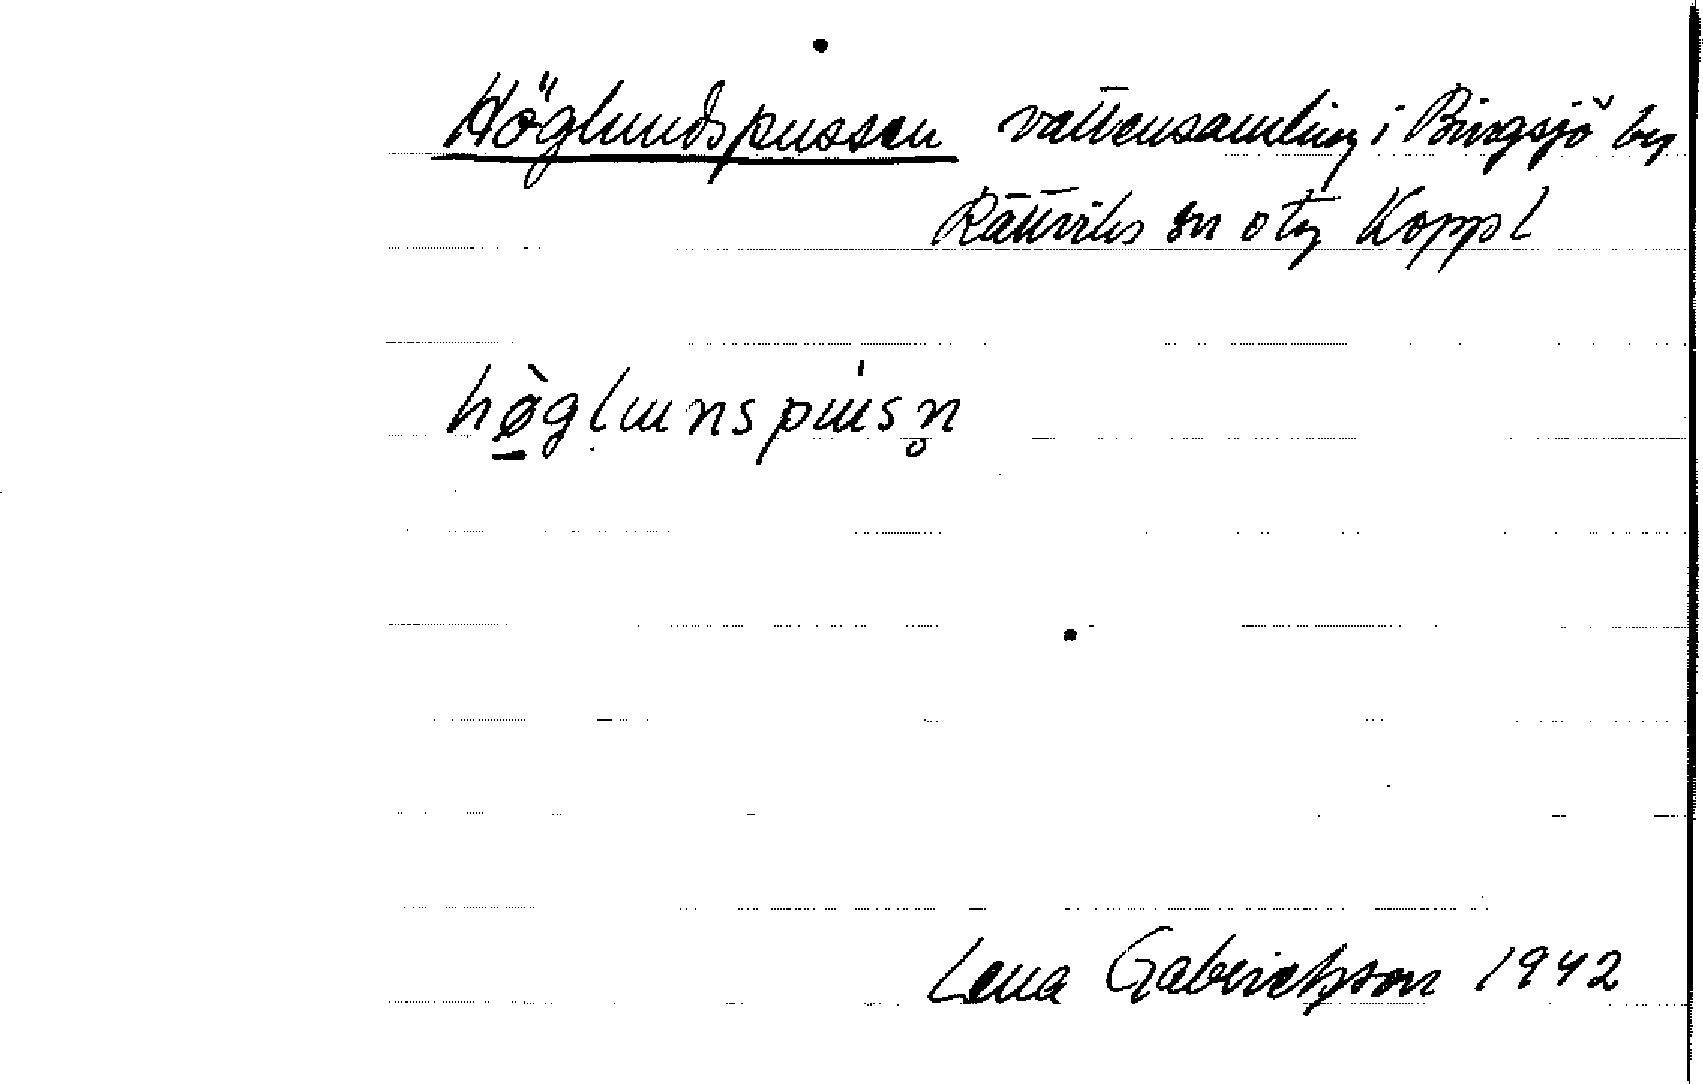 Höglundspussen vattensamling i Bingsjö by
Rättviks sn o tg Koppl
hø̱̀glɯnspɯ́sn̥
Lena Gabrielsson 1942